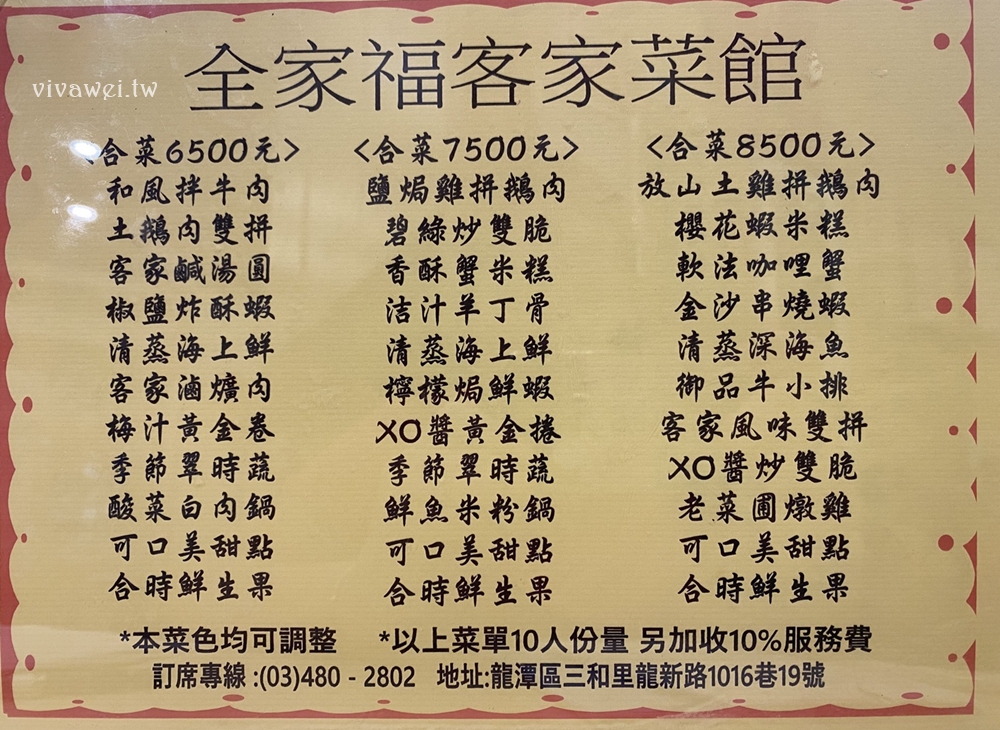 vivawei.tw
全家福客家菜館
<合菜6500元>
和風拌牛肉
土鵝肉雙拼
客家鹹湯圓
椒鹽炸酥蝦
清蒸海上鮮
客家滷爌肉
梅汁黃金卷
季節翠時蔬
酸菜白肉鍋
可口美甜點
合時鮮生果
<合菜7500元>
鹽焗雞拼鵝肉
碧綠炒雙脆
香酥蟹米糕
洁汁羊丁骨
清蒸海上鮮
檸檬焗鮮蝦
XO醬黃金捲
季節翠時蔬
鮮魚米粉鍋
可口美甜點
合時鮮生果
<合菜8500元>
放山土雞拼鵝肉
櫻花蝦米糕
軟法咖哩蟹
金沙串燒蝦
清蒸深海魚
御品牛小排
客家風味雙拼
XO醬炒雙脆
老菜圃燉雞
可口美甜點
合時鮮生果
*本菜色均可調整 *以上菜單10人份量 另加收10%服務費
訂席專線:(03)480 - 2802 地址:龍潭區三和里龍新路1016巷19號